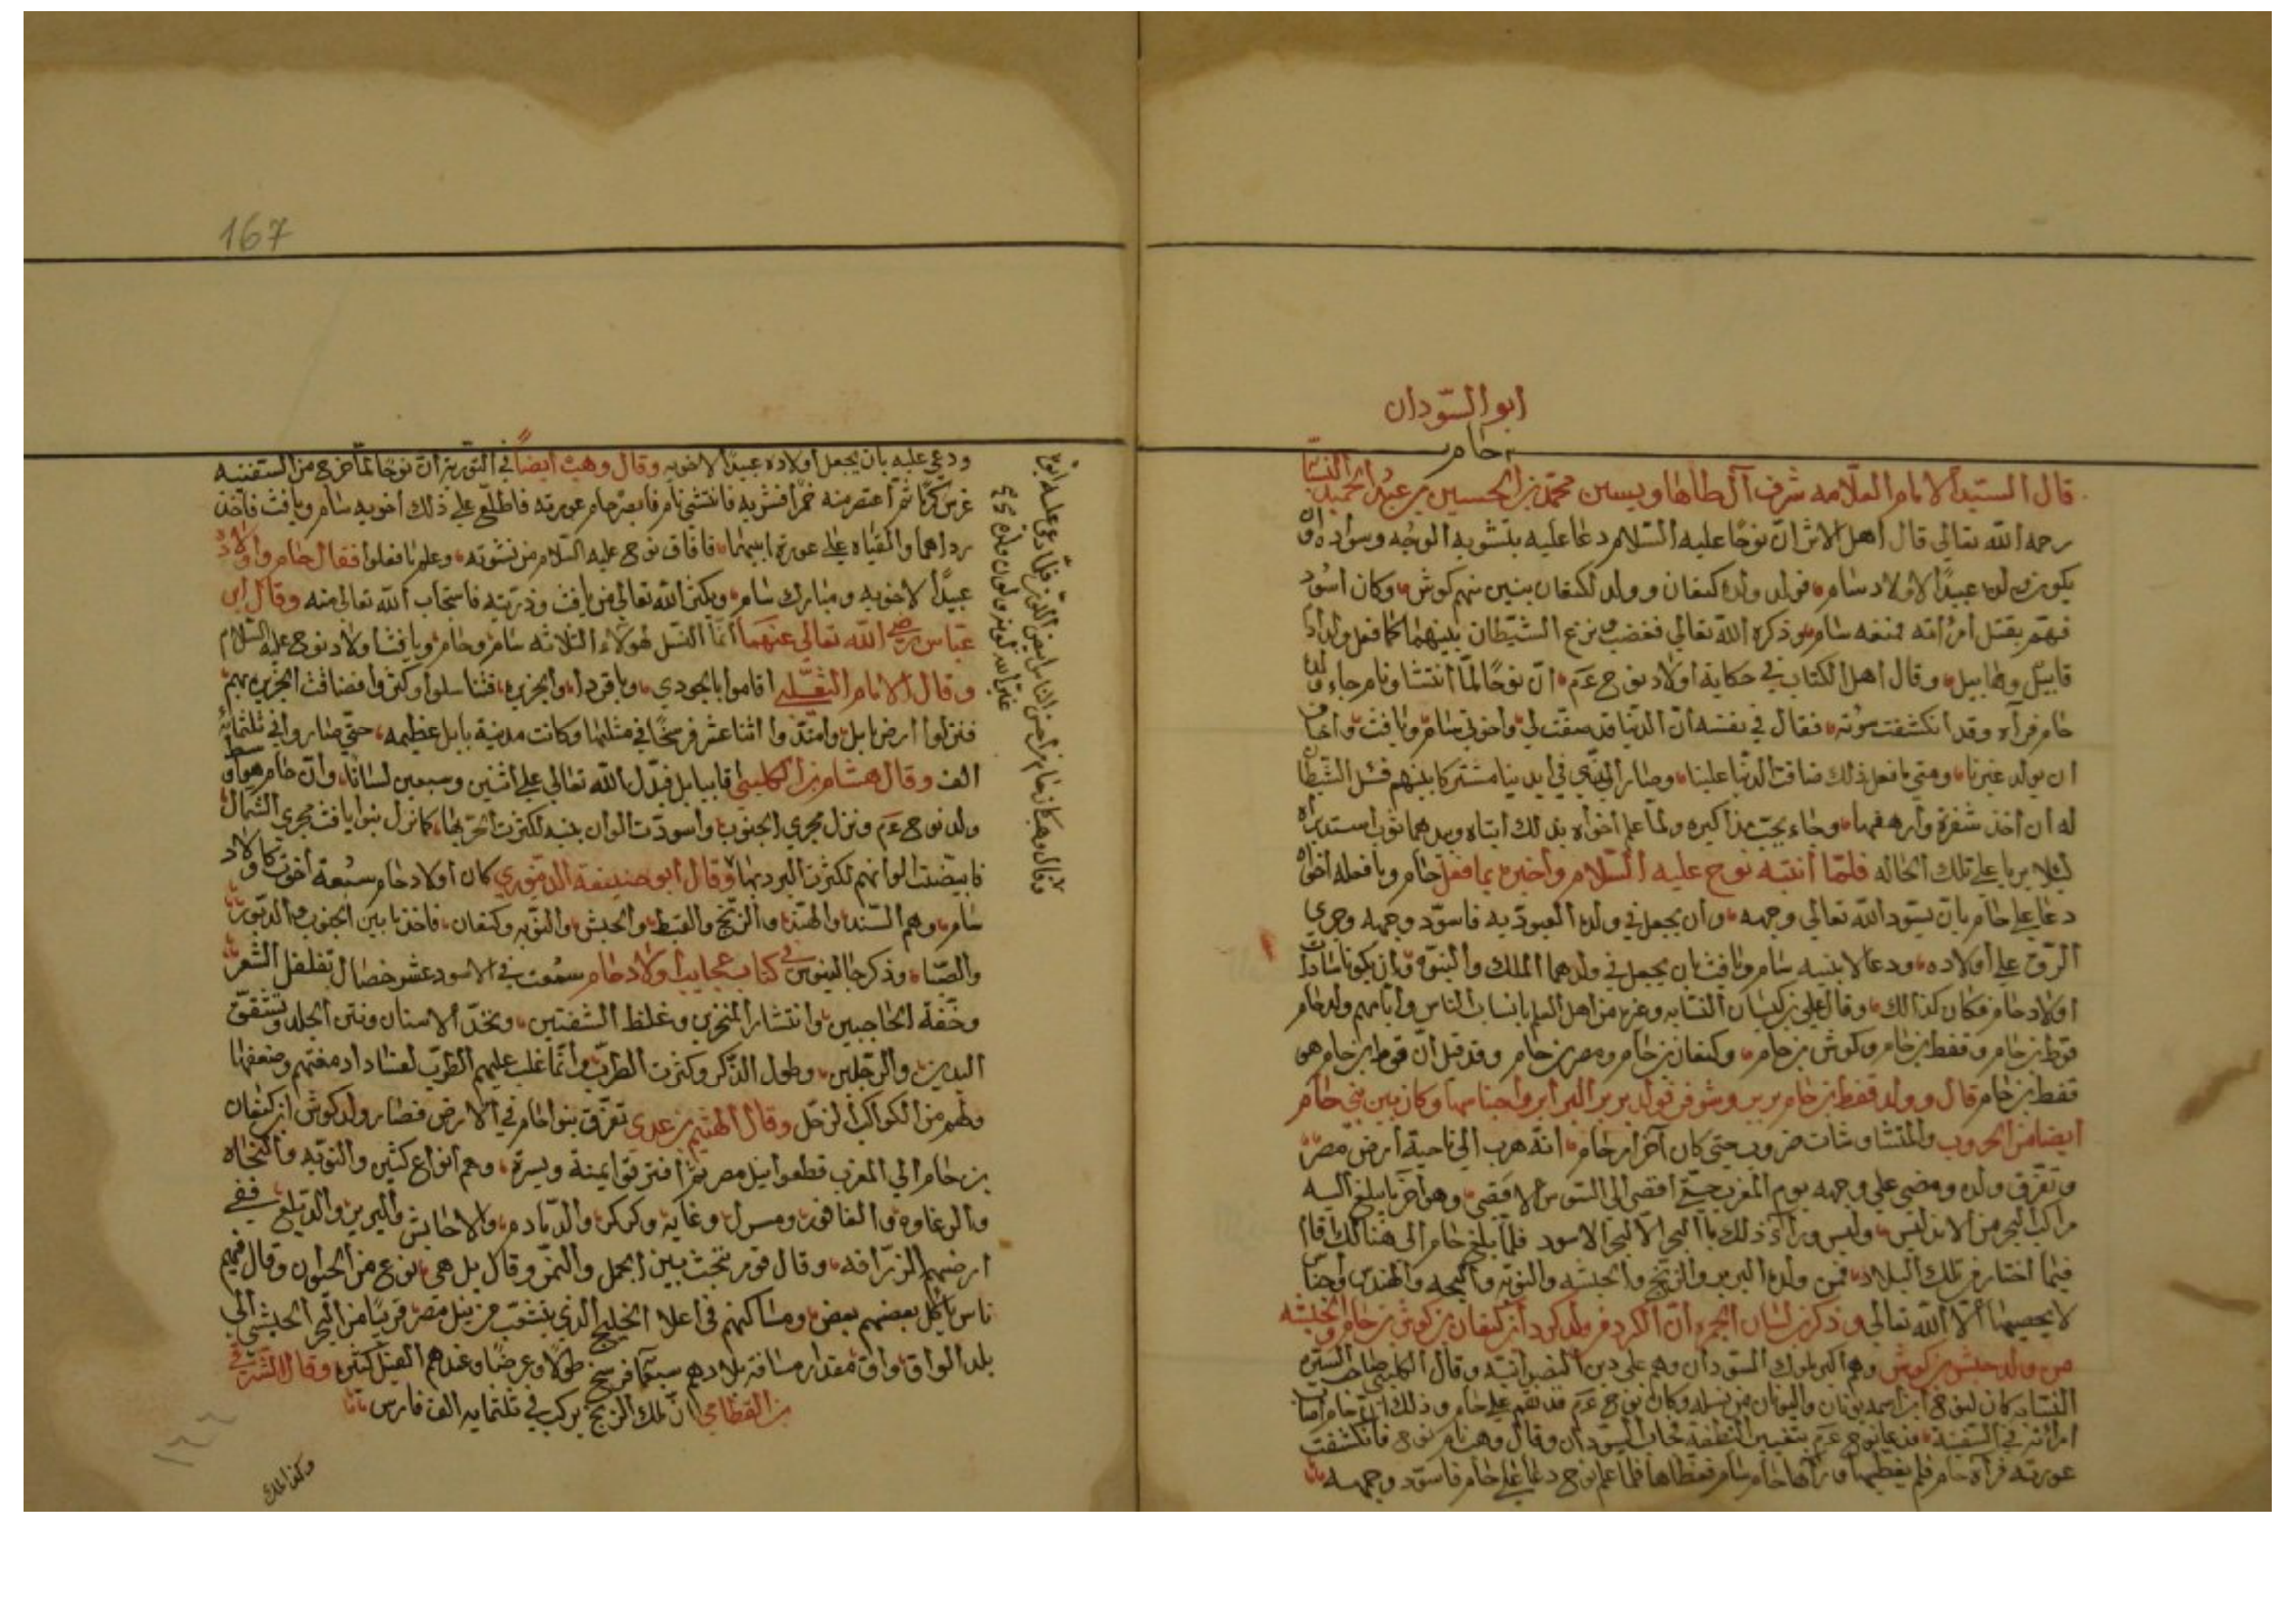 أبو السّودان
حام
قال السيد الامام العلّامه شرف آل طاها ويسين محمّد بن الحسين بن عبد الحميد النسّابه
رحمه الله تعالى قال أهل الاثر ان نوحًا عليه السّلام دعا عليه بتشويه الوجه وسواده وان
يكون ولده عبيدًا لاولاد سام فولد ولده كنعان وولد لكنعان بنين منهم كوش وكان أسود
فهمّ بقتل امرأته فمنعه سام وذكره الله تعالى فغضب ونزغ الشيّطان بينهما كما فعل ولد آدم
قابيل وهابيل وقال أهل الكتاب في حكاية أولاد نوح عم ان نوحًا لمّا أنتشا ونام جاء ولده
حام فرآه وقد انكشفت سوته فقال في نفسه أن الدنيا قد صفت لي ولأخوتي سام ويافث وأخاف
ان يولد غيرنا ومتى ما فعل ذلك ضاقت الدنيا علينا وصار الذي في ايدينا مشتركا بينهم فسّل الشيطان
له أن أخذ شفرة وأرهفها وجاء يجبّ مذاكيره ولمّا علم أخواه بذلك أتياه وبيدهما ثوب استدبراه
ليلا يريا على تلك الحاله فلمّا أنتبه نوح عليه السّلام وأخبره بما فعل حام وما فعله اخواه
دعا على حام بان يسود الله تعالى وجهه وأن يجعل في ولده العبوديه فاسودّ وجهه وجرى
الرّق على أولاده ودعا لابنيه سام ويافث بان يجعل في ولدهما الملك والنبوّه وان يكونا سادات
أولاد حام فكان كذالك وقال علي بن كيسان النسّابه وغيره من أهل العلم بانساب الناس وأيامهم ولد حام
قوط بن حام وقفط بن حام وكوش بن حام وكنعان بن حام ومصر بن حام وقد قيل أن قوط بن حام هو
قفط بن حام قال وولد قفط بن حام بربر وشوفر فولد بربر البرابر وأجناسها وكان بين بني حام
ايضا من الحروب والمتشاوشات ضروب حتى كان آخر أمر حام انه هرب الى ناحية أرض مصر
وتفرّق ولده ومضى على وجهه يوم المغرب حتى أفضى الى السّوس الاقصى وهو آخر ما يبلغ اليه
مراكب البحر من الاندلس وليس وراء ذلك ماا البحر الّا البحر الاسود فلمّا بلغ حام الى هنالك قام
فيما أختار من تلك البلاد فمن ولده البربر والزنج والحبشه والنوبه والبجه والهند وأجناس
لا يحصيها الّا الله تعالى وذكر بن لسان الحمره أن الكرد من ولد كرد بن كنعان بن كوش بن حام والحبشه
من ولد حبش بن كوش وهم أكبر ملوك السّودان وهم على دين النصرانيّه وقال الكلبي صاحب السيره
النسّابه كان لنوح ابن اسمه يونان واليونان من نسله وكان نوح عم قد نقم على حام وذلك ان حام أصاب
امرأته في السّفينه فدعا نوح عم بتغيير النطفة فجاب السّودان وقال وهب نام نوح فانكشفت
عورته فرآه حام فلم يغطيها ورآها سام فغطاها فلمّا علم نوح دعا على حام فاسودّ وجهه
167
ودعى عليه بان يجعل أولاده عبيدًا لاخويه وقال وهب أيضاً في التوريه أن نوحًا لمّا خرج من السّفينه
غرس كرمًا ثمّ أعتصر منه خمرًا فشربه فانتشى نام فابصر حام عورته فاطّلع على ذلك أخويه سام ويافث فاخذ
رداهما والقياه على عورة أبيهما فافاق نوح عليه السّلام من نشوته وعلم ما فعلوا فقال حام وأولاده
عبيدًا لاخويه ومبارك سام ويكثر الله تعالى من يافث وذريته فاستجاب الله تعالى منه وقال ابن
عبّاس رضي الله تعالى عنهما أنّما النسل لهولاء الثلاثه سام وحام ويافث أولاد نوح عليه السّلام
وقال الامام الثعلبي أقاموا بالجودي وباقردا والجزيره فتناسلوا وكثروا فضاقت الجزيره بهم
فنزلوا أرض بابل وأمتدّوا أثنا عشر فرسخًا في مثلها وكانت مدينة بابل عظيمه حتى صاروا في ثلثمايه
الف وقال هشام بن الكلبي فبابل فبدّل الله تعالى على أثنين وسبعين لسانًا وأن حام هو أوسط
ولد نوح عم ونزل مجرى الجنوب وأسودّت الوان بنيه لكثرت الحرّ بها كما نزل بنوا يافث مجرى الشمال
فابيضت الوانهم لكثرت البرد بها وقال أبو حنيفة الدينوري كان أولاد حام سبعة أخوت كاولاد
سام وهم السّند والهند والزّنج والقبط والحبش والنوبه وكنعان فاخذوا ما بين الجنوب والدبّور
والصّبا وذكر جالينوس في كتاب عجايب أولاد حام سمعت في الاسود عشر خصال تفلفل الشعر
وخفّة الحاجبين وانتشار المنخرين وغلظ الشفتين وتحدّد الاسنان ونتن الجلد وتشقق
اليدين والرّجلين وطول الذكر وكثرت الطرب وأنّما غلب عليهم الطرب لفساد ادمغتهم وضعفها
ولهم من الكواكب الزحل وقال الهيثم بن عدي تفرّق بنوا حام في الارض فصار ولد كوش بن كنعان
بن حام الى المغرب قطعوا نيل مصر ثمّ أفترقوا يمنة ويسرة وهم أنواع كثير والنوبه والبجاه
والزغاوه والفاقو ومسرل وغايه وكركر والدّمادم والاحابش والبربر والديلغ ففي
أرضهم الزّرافه وقال قوم نتجت بين الجمل والنمر وقال بل هي نوع من الحيوان وقال فيهم
ناس يأكل بعضهم بعض ومساكنهم في أعلا الخليج الذي يتشعب من نيل مصر قريبًا من البحر الحبشي الى
بلد الواق واق مقدار مسافة بلادهم سبعمآ فرسخ طولًا وعرضًا وعندهم الفيل كثير وقال الشرقي
بن القطامي انّ ملك الزنج يركب في ثلثمايه الف فارس
وقال وهب كان حام من أحسن الناس أبيض اللون فلمّا دعى عليه أبوه
غيّر الله لونه ولون ولده